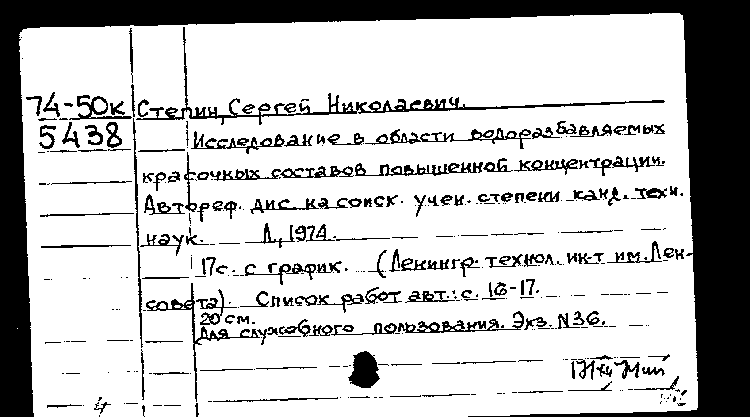 74-50к Степин, Сергей Николаевич.
5438 Исследование в области водоразбавляемых
красочных составов повышенной концентрации.
Автореф. дис. на соиск. учен. степени канд. техн.
наук. Л., 1974.
17с. с график. (Ленингр. технол. ин-т им. Лен-
совета). Список работ авт.: с. 16-17.
20 см.
Для служебного пользования. Экз. N36.